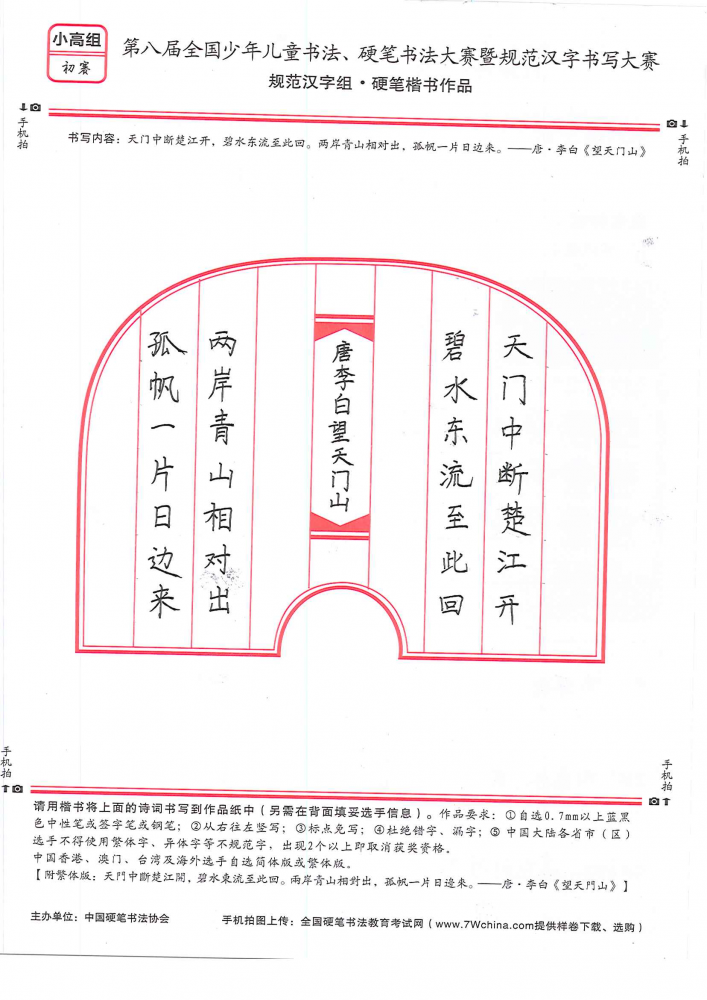 小高组
初赛
第八届全国少年儿童书法、硬笔书法大赛暨规范汉字书写大赛
规范汉字组·硬笔楷书作品
手机拍
手机拍
书写内容：天门中断楚江开，碧水东流至此回。两岸青山相对出，孤帆一片日边来。——唐·李白《望天门山》
天门中断楚江开
碧水东流至此回
唐李白望天门山
两岸青山相对出
孤帆一片日边来
手机拍
手机拍
请用楷书将上面的诗词书写到作品纸中（另需在背面填妥选手信息）。作品要求：①自选0.7mm以上蓝黑
色中性笔或签字笔或钢笔；②从右往左竖写；③标点免写；④杜绝错字、漏字；⑤中国大陆各省市（区）
选手不得使用繁体字、异体字等不规范字，出现2个以上即取消获奖资格。
中国香港、澳门、台湾及海外选手自选简体版或繁体版。
【附繁体版：天門中斷楚江開，碧水東流至此回。兩岸青山相對出，孤帆一片日邊來。——唐·李白《望天門山》】
主办单位：中国硬笔书法协会
手机拍图上传：全国硬笔书法教育考试网（www.7Wchina.com提供样卷下载、选购）